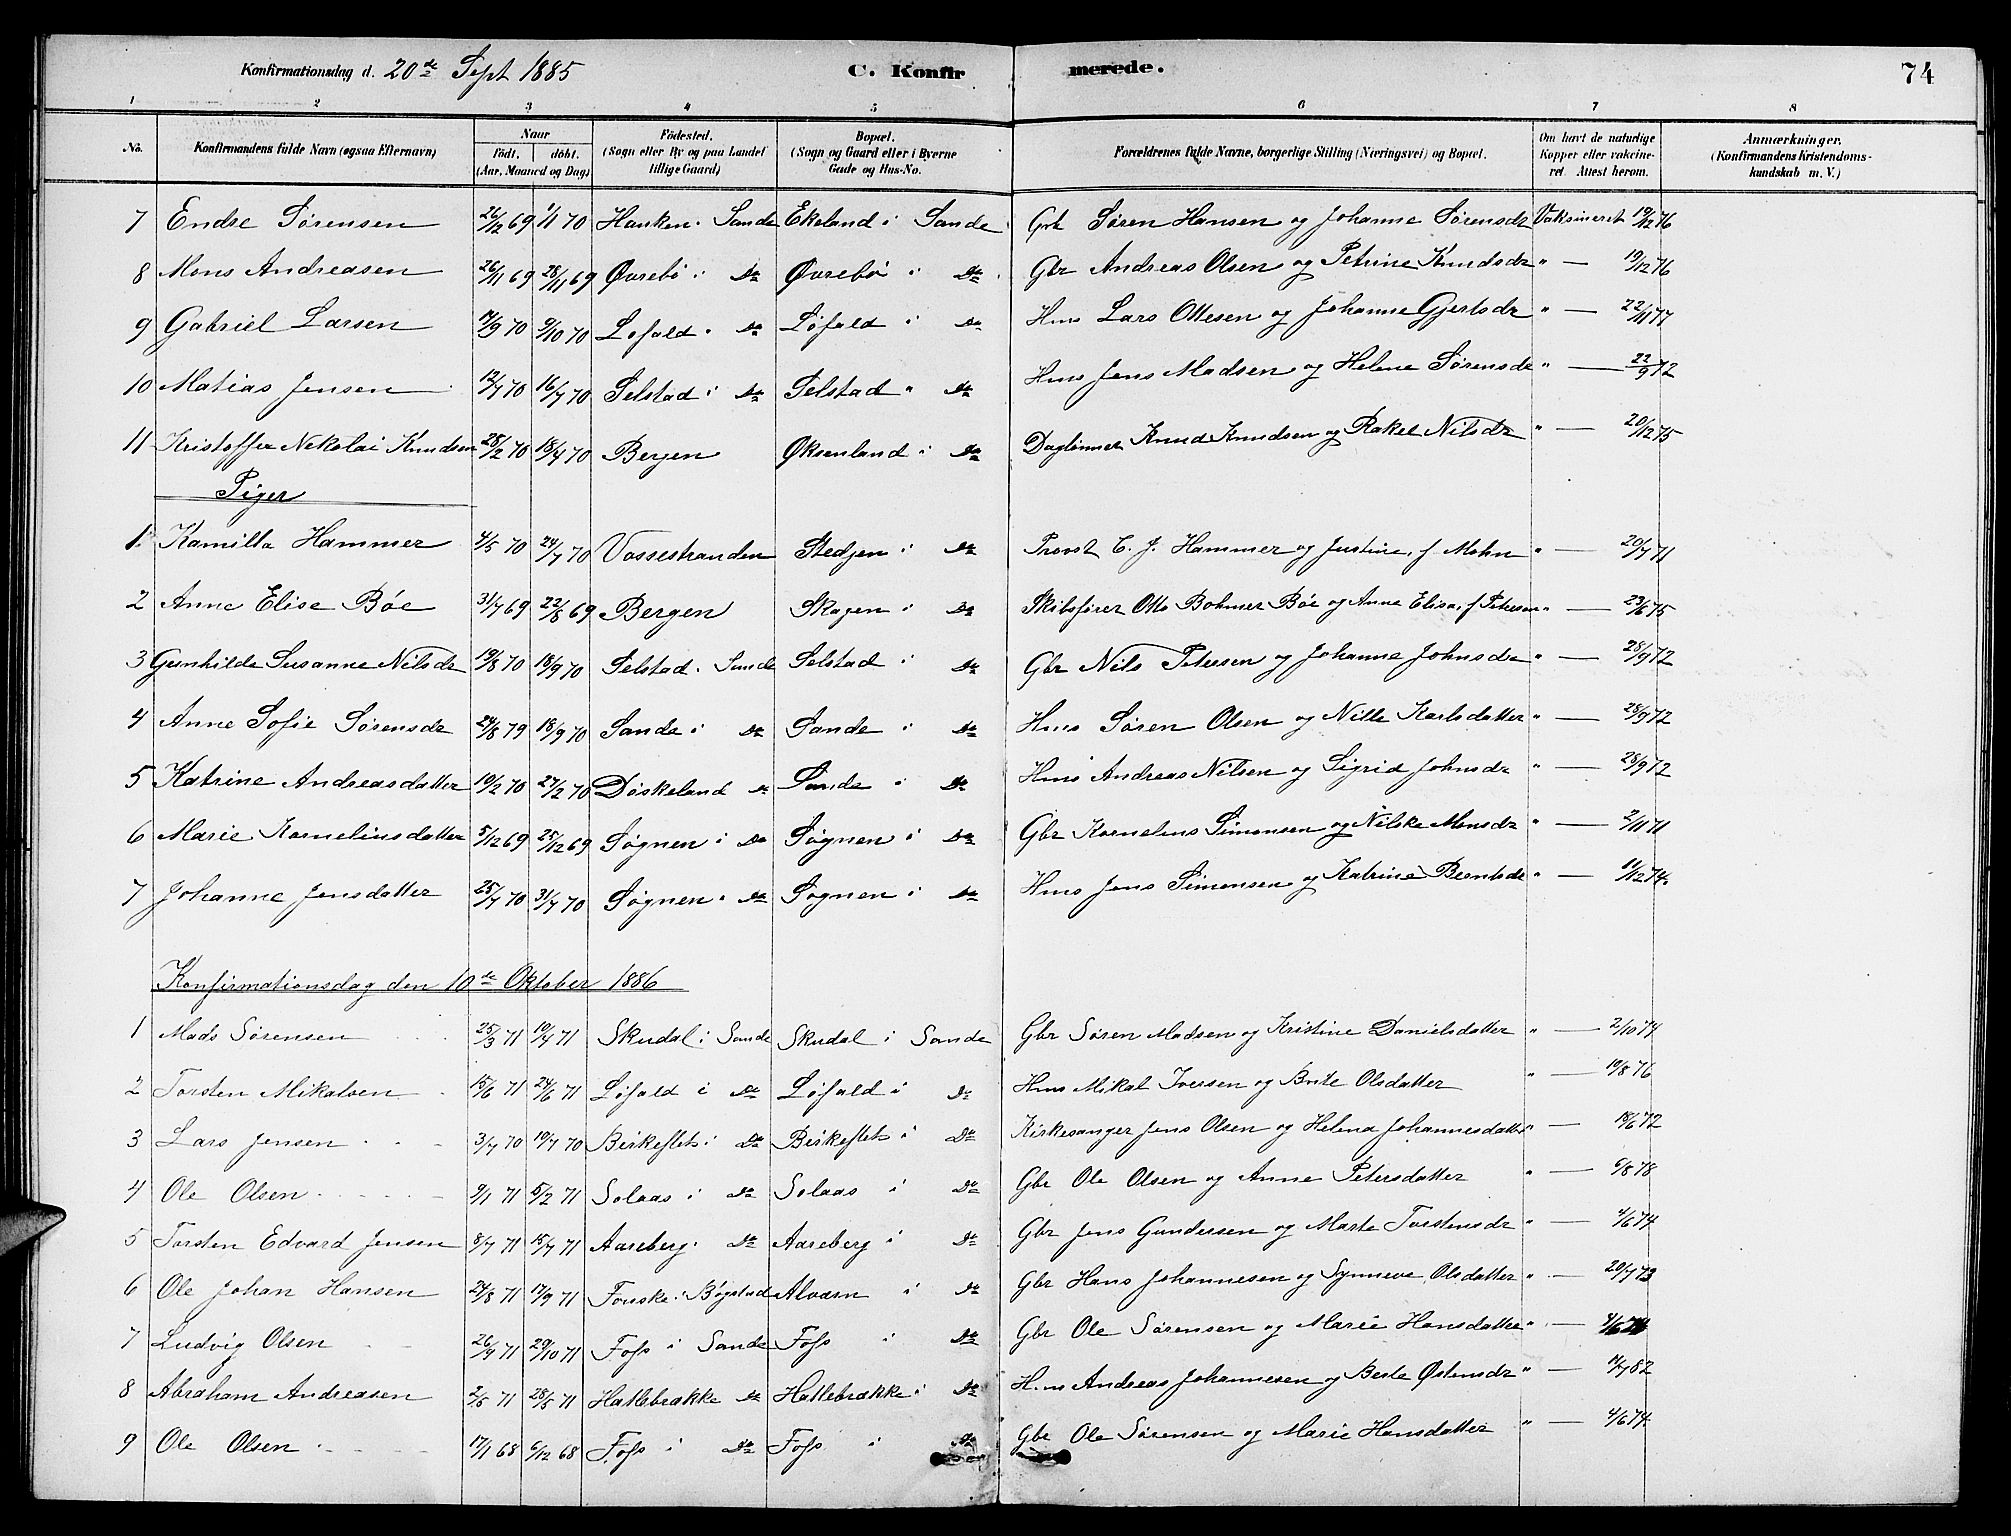 Konfirmationsdag d. 20de Sept 1885 C. Konfirmerede. 74
1 2 3 4 5 6 7 8
No. Konfirmandens fulde Navn (ogsaa Efternavn) Naar födt. döbt. (Aar, Maaned og Dag) Födested. (Sogn eller By og paa Landet tillige Gaard) Bopæl. (Sogn og Gaard eller i Byerne Gade og Hus-No. Forældrenes fulde Navne, borgerlige Stilling (Næringsvei) og Bopæl. Om havt de naturlige Kopper eller vakcineret. Attest herom. Anmærkninger. (Konfirmandens Kristendomskundskab m. V.)
7 Endre Sørensen 26/12 69 1/1 70 Hauken i Sande Ekeland i Sande Gbr Søren Hansen og Johanne Sørensdr Vaksineret 19/12 76
8 Mons Andreasen 26/11 69 28/11 69 Øvrebø i Do Øvrebø i Do Gbr Andreas Olsen og Petrine Knudsdr " — 19/12 76
9 Gabriel Larsen 7/9 70 9/10 70 Løfald i Do Løfald i Do Hms Lars Ottesen og Johanne Gjertsdr " — 22/11 77
10 Matias Jensen 12/7 70 16/7 70 Selstad i Do Selstad " Do Hms Jens Madsen og Helene Sørensdr " — 22/9 72
11 Kristoffer Nekolai Knudsen 28/2 70 18/4 70 Bergen Øksenland i Do Daglønner Knud Knudsen og Rakel Nilsdr " — 20/12 75
Piger
1. Kamilla Hammer 4/5 70 24/7 70 Vossestranden Stedjen i Do Provst C. J. Hammer og Justine, f. Mohn " — 20/7 71
2 Anne Elise Bøe 31/7 69 22/8 69 Bergen Skagen i Do Skibsfører Otto Bohmer Bøe og Anne Elisa, f Petersen " — 23/6 75
3 Gunhilde Susanne Nilsdr 19/8 70 18/9 70 Selstad i Sande Selstad i Do Gbr Nils Petersen og Johanne Johnsdr " — 28/9 72
4 Anne Sofie Sørensdr 24/8 79 18/9 70 Sande i Do Sande i Do Hms Søren Olsen og Nille Karlsdatter " — 28/9 72
5 Katrine Andreasdatter 19/2 70 27/2 70 Døskeland Do Sande i Do Hms Andreas Nilsen og Sigrid Johnsdr " — 28/9 72
6 Marie Korneliusdatter 5/12 69 25/12 69 Søgnen i Do Søgnen i Do Gbr Kornelius Simonsen og Nilske Monsdr " — 2/11 71
7 Johanne Jensdatter 25/7 70 31/7 70 Søgnen i Do Søgnen i Do Hms Jens Simonsen og Katrine Berntsdr " — 11/12 74.
Konfirmationsdag den 10de Oktober 1886
1 Mads Sørensen 25/3 71 10/4 71 Skudal i Sande Skudal i Sande Gbr Søren Madsen og Kristine Danielsdatter " — 2/10 74
2 Torsten Mikalsen 15/6 71 24/6 71 Løfald i Do Løfald i Do Hms Mikal Iversen og Brite Olsdatter " — 19/8 76
3 Lars Jensen 3/7 70 10/7 70 Birkeflet i Do Birkeflet i Do Kirkesanger Jens Olsen og Helena Johannesdatter " — 18/6 72
4 Ole Olsen 9/1 71 5/2 71 Solaas i Do Solaas i Do Gbr Ole Olsen og Anne Petersdatter " — 6/8 78
5 Torsten Edvard Jensen 8/7 71 15/7 71 Aareberg i Do Aareberg i Do Gbr Jens Gundersen og Marte Torstensdr " — 4/6 74
6 Ole Johan Hansen 24/8 71 17/9 71 i Bøgstad Alværn i Do Gbr Hans Johannesen og Synneve Olsdatter " — 20/7 73
7 Ludvig Olsen 26/9 71 29/10 71 Foss i Sande Foss i Do Gbr Ole Sørensen og Marie Hansdatter " — 4/6 74
8 Abraham Andreasen 2/5 71 28/5 71 Hatlebrække Do Hatlebrække i Do Hms Andreas Johannesen og Berte Østensdr " — 14/7 82
9 Ole Olsen 17/1 68 6/12 68 Foss i Do Foss i Do Gbr Ole Sørensen og Marie Hansdatter " — 4/6 74